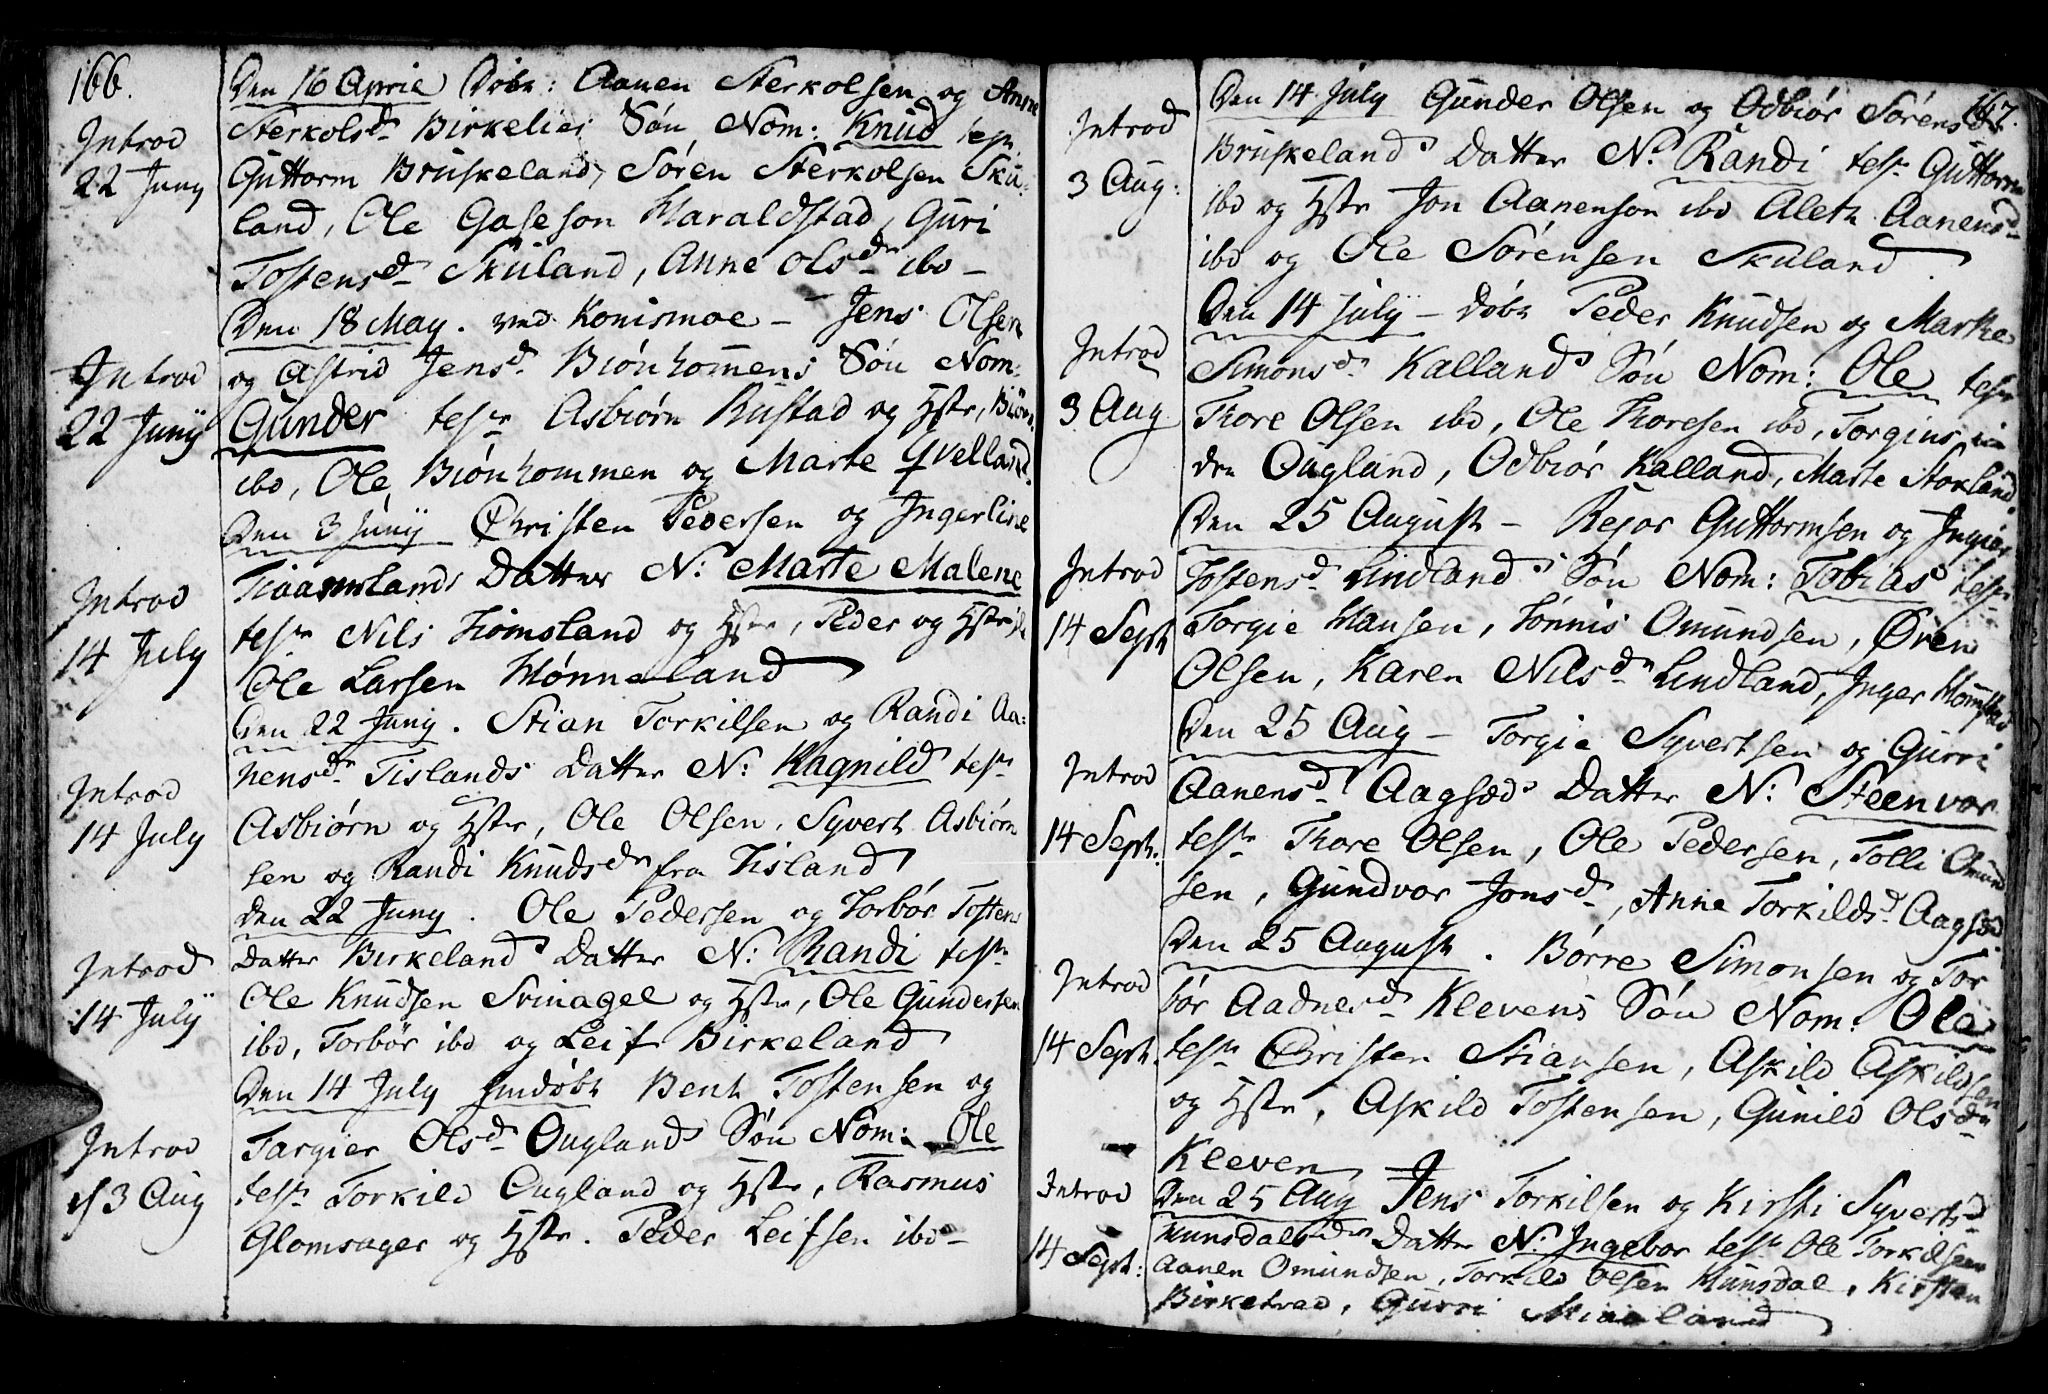 166.
Den 16 April Döbt: Aanen Sterkolsen og Anne
Sterkolsd. Birkelies Søn Nom: Knud test.
Guttorm Bruskeland, Sören Sterkolsen Sku-
land, Ole Gaseson Haraldstad, Guri
Tostensd. Skuland, Anne Olsd. ibd -
Introd
22 Juny
Den 18 May. ved Konismoe - Jens Olsen
og Astrid Jensd. Biönhommens Søn Nom:
Gunder test. Asbiørn Rustad og Hstr,
ibd, Ole Biönhommen og Marte Qvelland.
Introd
22 Junÿ
Den 3 Junÿ Christen Pedersen og Ingerline
Datter N: Marte Malene
test. Nils Tiomsland og Hstr, Peder og Hstr
Ole Larsen Hönneland
Introd
14 July
Den 22 Juny. Stian Torkilsen og Randi Aa-
nensd. Tislands Datter N: Ragnild test.
Asbiørn og Hstr, Ole Olsen, Syvert Asbiørn
sen og Randi Knudsd. fra Tisland
Introd
14 July
Den 22 Juny. Ole Pedersen og Torbör Tostens
Datter Birkelands Datter N: Randi test.
Ole Knudsen Svinagel og Hstr, Ole Gundersen
ibd, Torbör ibd og Leif Birkeland
Introd
14 Julÿ
Den 14 July hmdöbt Bent Tostensen og
Targier Olsd. Öuglands Søn Nom: Ole
test. Torkild Öugland og Hstr, Rasmus
Glomsager og Hstr. Peder Leifsen ibd -
Introd
3 Aug
167.
Den 14 July Gunder Olsen og Odbiör Sörensd.
Bruskelands Datter N. Randi test. Guttorm
ibd og Hstr Jon Aanenson ibd Aleth Aanensd.
ibd og Ole Sörensen Skuland
Introd
3 Aug:
Den 14 july - döbt Peder Knudsen og Marthe
Simonsd. Kallands Søn Nom: Ole test
Thore Olsen ibd, Ole Thoresen ibd, Torgius
Öugland, Odbiör Kalland, Marte Stokland
Introd
3 Aug
Den 25 August - Rejor Guttormsen og Ingier
Tostensd. Lindlands Søn Nom: Tobias test.
Torgie Hansen, Tönnis Omundsen, Ören
Olsen, Karen Nilsd. Lindland, Inger
Introd
14 Sept
Den 25 Aug - Torgie Syvertsen og Gurri
Aanensd. Aagsæds Datter N: Steenvor
test. Thore Olsen, Ole Pedersen, Tolli Omund
sen, Gundvor Jonsd., Anne Torkildsd. Aagsæd
Introd
14 Sept:
Den 25 August. Börre Simonsen og Tor
bör Aadnesd. Klevens Søn Nom: Ole
test. Christen Stiansen, Askild Askildsen
og Hstr, Askild Tostensen, Gunild Olsd.
Kleven
Introd
14 Sept.
Den 25 Aug Jens Torkilsen og Kirsti Syvertsd.
Hunsdals Datter N. Ingebor test. Ole Torkilsen
Aanen Omundsen, Torkild Olsen Hunsdal, Kirsten
Birketved, Gurri
Introd
14 Sept: